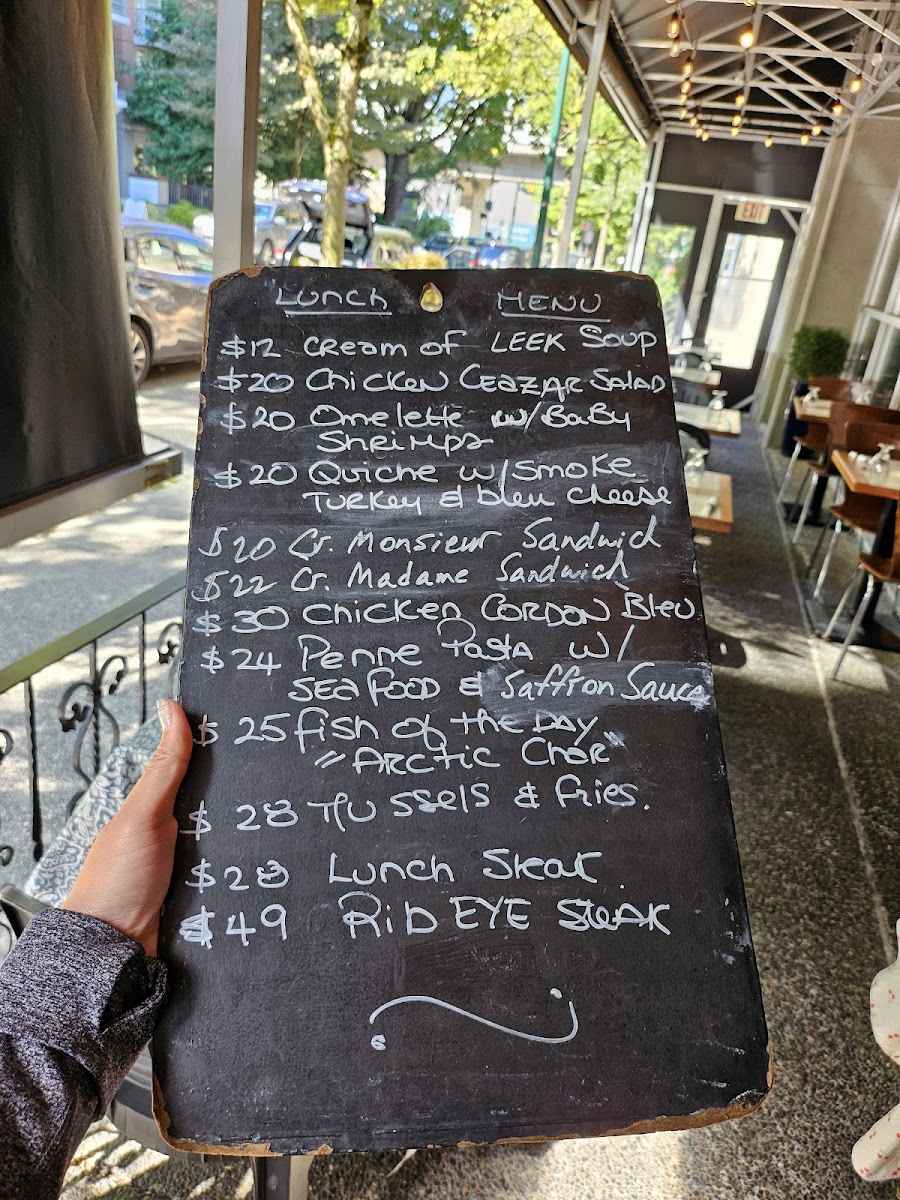 LUNCH MENU
$12 CREAM OF LEEK SOUP
$20 CHICKEN CEAZAR SALAD
$20 Omelette w/BABY
SHRIMPS
$20 Quiche w/Smoke
TURKEY & bleu cheese
$20 Cr. Monsieur Sandwich
$22 Cr. Madame Sandwich
$30 CHICKEN CORDON Bleu
$24 Penne PASTA w/
SEAFOOD & Saffron Sauce
$25 fish of the DAY
"ARCTIC CHAR"
$28 MUSSELS & fries.
$28 LUNCH Steak.
$49 RIB EYE STEAK
EXIT